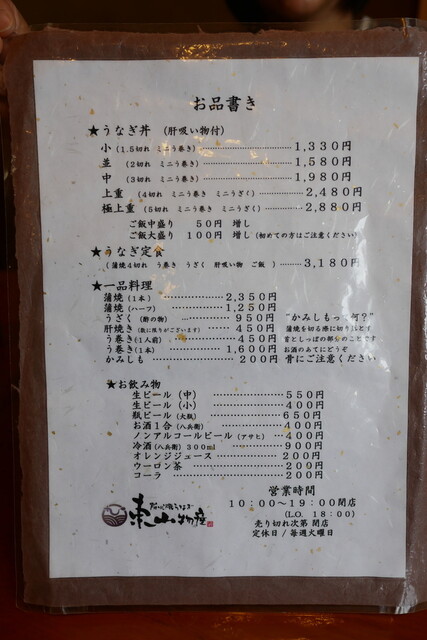 お品書き
★うなぎ丼 (肝吸い物付)
小 (1.5切れ ミニう巻き) 1,330円
並 (2切れ ミニう巻き) 1,580円
中 (3切れ ミニう巻き) 1,980円
上重 (4切れ ミニう巻き ミニうざく) 2,480円
極上重 (5切れ ミニう巻き ミニうざく) 2,880円
ご飯中盛り 50円 増し
ご飯大盛り 100円 増し (初めての方はご注意ください)
★うなぎ定食
(蒲焼4切れ う巻き うざく 肝吸い物 ご飯 ) 3,180円
★一品料理
蒲焼 (1本) 2,350円
蒲焼 (ハーフ) 1,250円
うざく (酢の物) 950円 "かみしもって何?"
肝焼き (数に限りがございます) 450円 蒲焼を切る際に切り落とす
う巻き (1人前) 450円 首としっぽの部分のことです
う巻き (1本) 1,600円 お酒のあてにどうぞ
かみしも 200円 骨にご注意ください
★お飲み物
生ビール (中) 550円
生ビール (小) 400円
瓶ビール (大瓶) 650円
お酒1合 (八兵衛) 400円
ノンアルコールビール (アサヒ) 400円
冷酒 (八兵衛) 300ml 900円
オレンジジュース 200円
ウーロン茶 200円
コーラ 200円
営業時間
10:00~19:00閉店
(L.O. 18:00)
売り切れ次第 閉店
定休日/毎週火曜日
東山物産